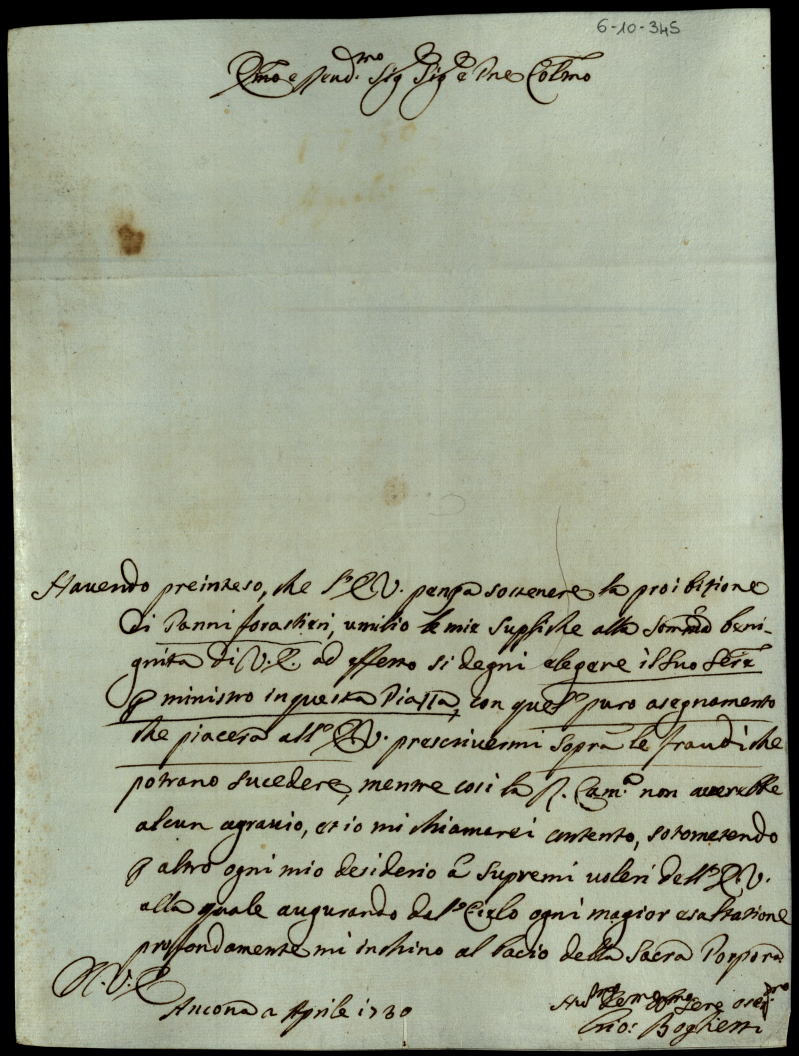 6-10-345
Emo e Rend.mo Sig Sig e Pne Colmo
Havendo preinteso, che l'E.V. pensa sostenere la proibizione
di Panni forastieri, umilio le mie supliche alla somma beni-
gnita di V.E. ad effetto si degni elegere il suo Ser.e
p ministro in questa Piazza, con quel puro asegnamento
che piacerà all'E.V. prescrivermi sopra le fraudi che
potrano sucedere, mentre cosi la R. Cam.a non averebbe
alcun agravio, et io mi chiamarei contento, sotometendo
p altro ogni mio desiderio a supremi voleri dell'E.V.
alla quale augurando dal Cielo ogni magior esaltatione
profondamente mi inchino al bacio della Sacra Porpora
D. V. E.
Ancona a Aprile 1730
Gio: Boglietti